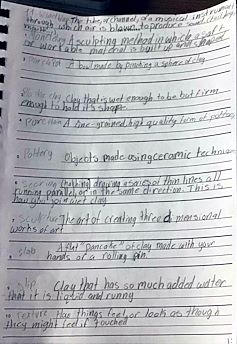 The tube, or channel, of a musical instrument
through which air is blown to produce sound
A sculpting method in which a soft
or workable material is built up and shaped
A bowl made by pinching a sphere of clay.
Clay that is wet enough to be but firm
enough to hold it's shape.
A fine-grained, high quality form of pottery
• Pottery Objects made using ceramic techniques
• scoring (hatching) drawing a series of thin lines all
running parallel, or in the same direction. This is
how you wet clay
The art of creating three dimensional
works of art.
• slab A flat "pancake" of clay made with your
hands or a rolling pin.
• slip Clay that has so much added water
that it is liquid and runny
• texture How things feel, or look as though
they might feel if touched